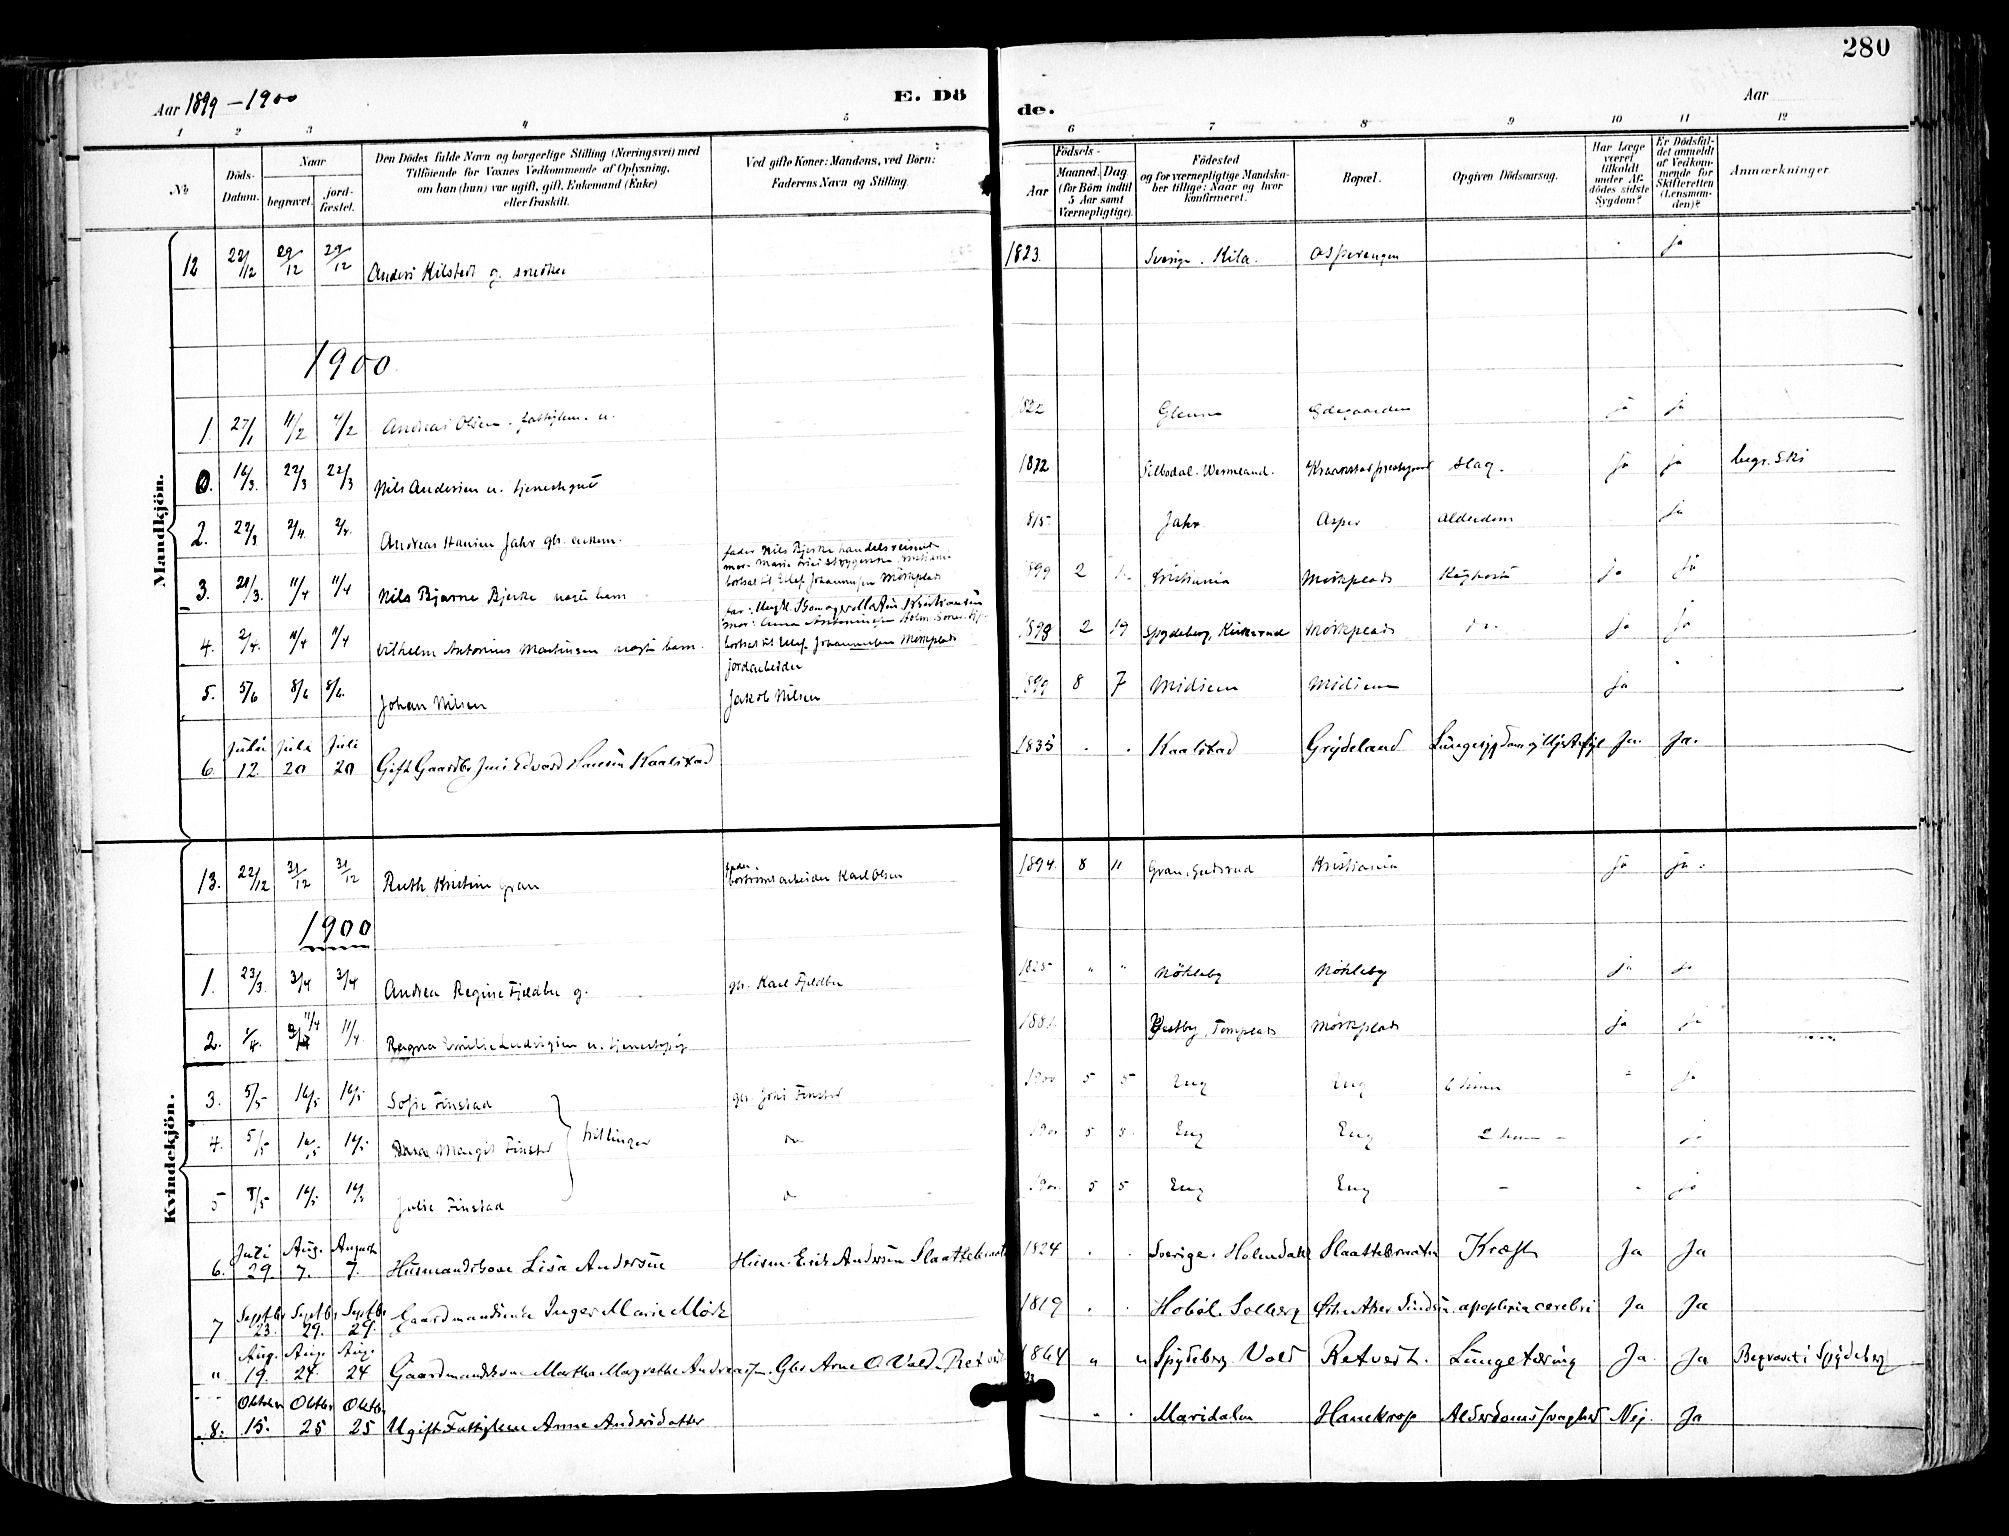 280
Aar 1899 – 1900
E. Dö
de.
Aar
1 2 3 4 5 6 7 8 9 10 11 12
No
Döds-Datum.
Naar
begravet.
jord-fæstet.
Den Dödes fulde Navn og borgerlige Stilling (Næringsvei) med
Tilföiende for Voxnes Vedkommende af Oplysning,
om han (hun) var ugift, gift, Enkemand (Enke)
eller fraskilt.
Ved gifte Koner: Mandens, ved Børn:
Faderens Navn og Stilling.
Födsels-
Aar
Maaned. Dag
(for Börn indtil
5 Aar samt
Værnepligtige).
Födested
og for værnepligtige Mandska-
ber tillige: Naar og hvor
konfirmeret.
Bopæl.
Opgiven Dödsaarsag.
Har Læge
været
tilkaldt
under Af-
dödes sidste
Sygdom?
Er Dödsfal-
det anmeldt
af Vedkom-
mende for
Skifteretten
(Lensman-
den)?
Anmærkninger
Mandkjön.
12 22/12 29/12 29/12 Anders Kilstedt g. snedker 1823. Sverige. Kila. Asperengen ja
1900
1. 27/1 11/2 11/2 Andreas Olsen. fattiglem. u. 1822 Glenne Ødegaarden ja ja
0. 16/3. 22/3 22/3 Nils Andersen u. tjenestegut 1872 Silbodal. Wermeland. Slag. ja ja begr. Ski
2. 27/3 2/4. 2/4. Andreas Hansen Jahr gbr. enkem. 815 Jahr Asper Alderdom ja
3. 28/3. 11/4 11/4 Nils Bjarne Bjerke uægte barn
fader Nils Bjerke handelsreisende
bortsat til Ellef Johannesen Mørkplads
1899 2 Kristiania Mørkplads Kighoste ja ja
4. 2/4. 11/4 11/4 Vilhelm Antonius Martinsen uægte barn.
bortsat til Ellef Johannesen Mørkplads
1898 2 19 Spydeberg, Kirkerud Mørkplads do ja ja
5. 5/6 8/6 8/6. Johan Nilsen
jordarbeider
Jakob Nilsen
1899 8 7 Midsem Midsem ja
6. Juli 12. Juli 20 Juli 20 Gift Gaardbr Jens Edvard Hansen Kaalstad 1835 . . Kaalstad Grydeland Ja. Ja.
Kvindekjön.
13. 22/12 31/12 31/12 Ruth Kristine Gran
fader
Karl Olsen
1894. 8 11 Gran. Kristiania ja ja.
1900
1. 23/3. 3/4 3/4 Andrea Regine Fjeldbu g. gbr. Karl Fjeldbu 1825 " " Nøkleby Nøkleby ja ja
2. 1/4. 11/4 11/4. Ragna Emilie Ludvigsen u. tjenestepig Vestby, Tomplads Mørkplads ja ja
3. 5/5 16/5 16/5 Sofie Finstad gbr. Finstad 1900 5 5 Eng Eng 6 timer " ja
4. 5/5 16/5 16/5 Margit Finstad trillinger do 1900 5 5. Eng Eng 2 timer – ja
5 5/5 16/5 16/5 Julie Finstad do 1900 5 5 Eng Eng – " ja
6. Juli 29. Aug. 7. August 7. Husmandskone Lisa Andersen Husm. Erik Andersen 1824 . . Sverige. Kræft Ja Ja
7 Septbr 23. Septbr 29. Septbr 29. Gaardmandsenke Inger Marie Mørk 1819 . . Hobøl. Solberg apoplexia cerebri Ja Ja
" Aug. 19. Aug. 24. Aug. 24 Gaardmandskone Martha Magrethe Andreasen. Gbr Arne O. Vold. Retvedt 1864 " " Spydeberg Vold Retvedt. Lungetæring Ja. Ja Begravet i Spydeberg
8. Oktober 15. Oktbr. 25 Oktbr. 25 Ugift Fattiglem Anne Andersdatter " . Maridalen Hanekrop Alderdomssvaghed Nej. Ja